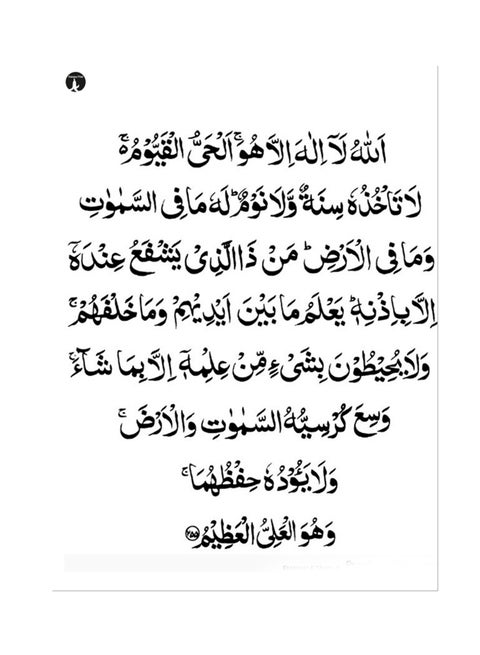 اَللّٰهُ لَاۤ اِلٰهَ اِلَّا هُوَۚ اَلْحَیُّ الْقَیُّوْمُ۬ۚ
لَا تَاْخُذُهٗ سِنَةٌ وَّلَا نَوْمٌؕ لَهٗ مَا فِی السَّمٰوٰتِ
وَمَا فِی الْاَرْضِؕ مَنْ ذَا الَّذِیْ یَشْفَعُ عِنْدَهٗۤ
اِلَّا بِاِذْنِهٖؕ یَعْلَمُ مَا بَیْنَ اَیْدِیْهِمْ وَمَا خَلْفَهُمْۚ
وَلَا یُحِیْطُوْنَ بِشَیْءٍ مِّنْ عِلْمِهٖۤ اِلَّا بِمَا شَآءَۚ
وَسِعَ كُرْسِیُّهُ السَّمٰوٰتِ وَالْاَرْضَۚ
وَلَا یَـُٔوْدُهٗ حِفْظُهُمَاۚ
وَهُوَ الْعَلِیُّ الْعَظِیْمُ ﴿۲۵۵﴾